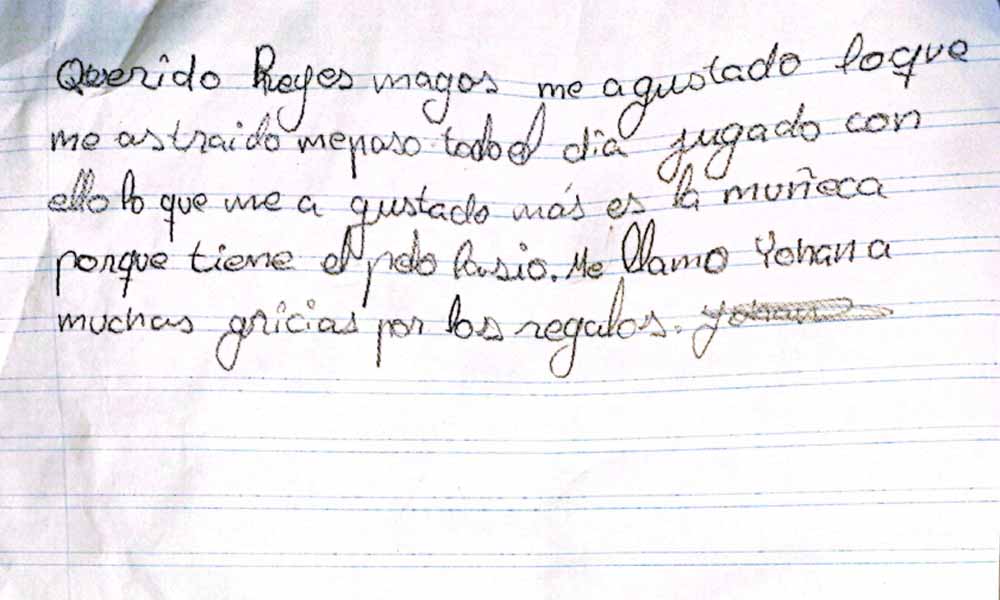 Querido Reyes magos me agustado loque
me astraido mepaso todo el dia jugado con
ello lo que me a gustado más es la muñeca
porque tiene el pelo lasio. Me llamo Yohana
muchas gricias por los regalos. Yohana